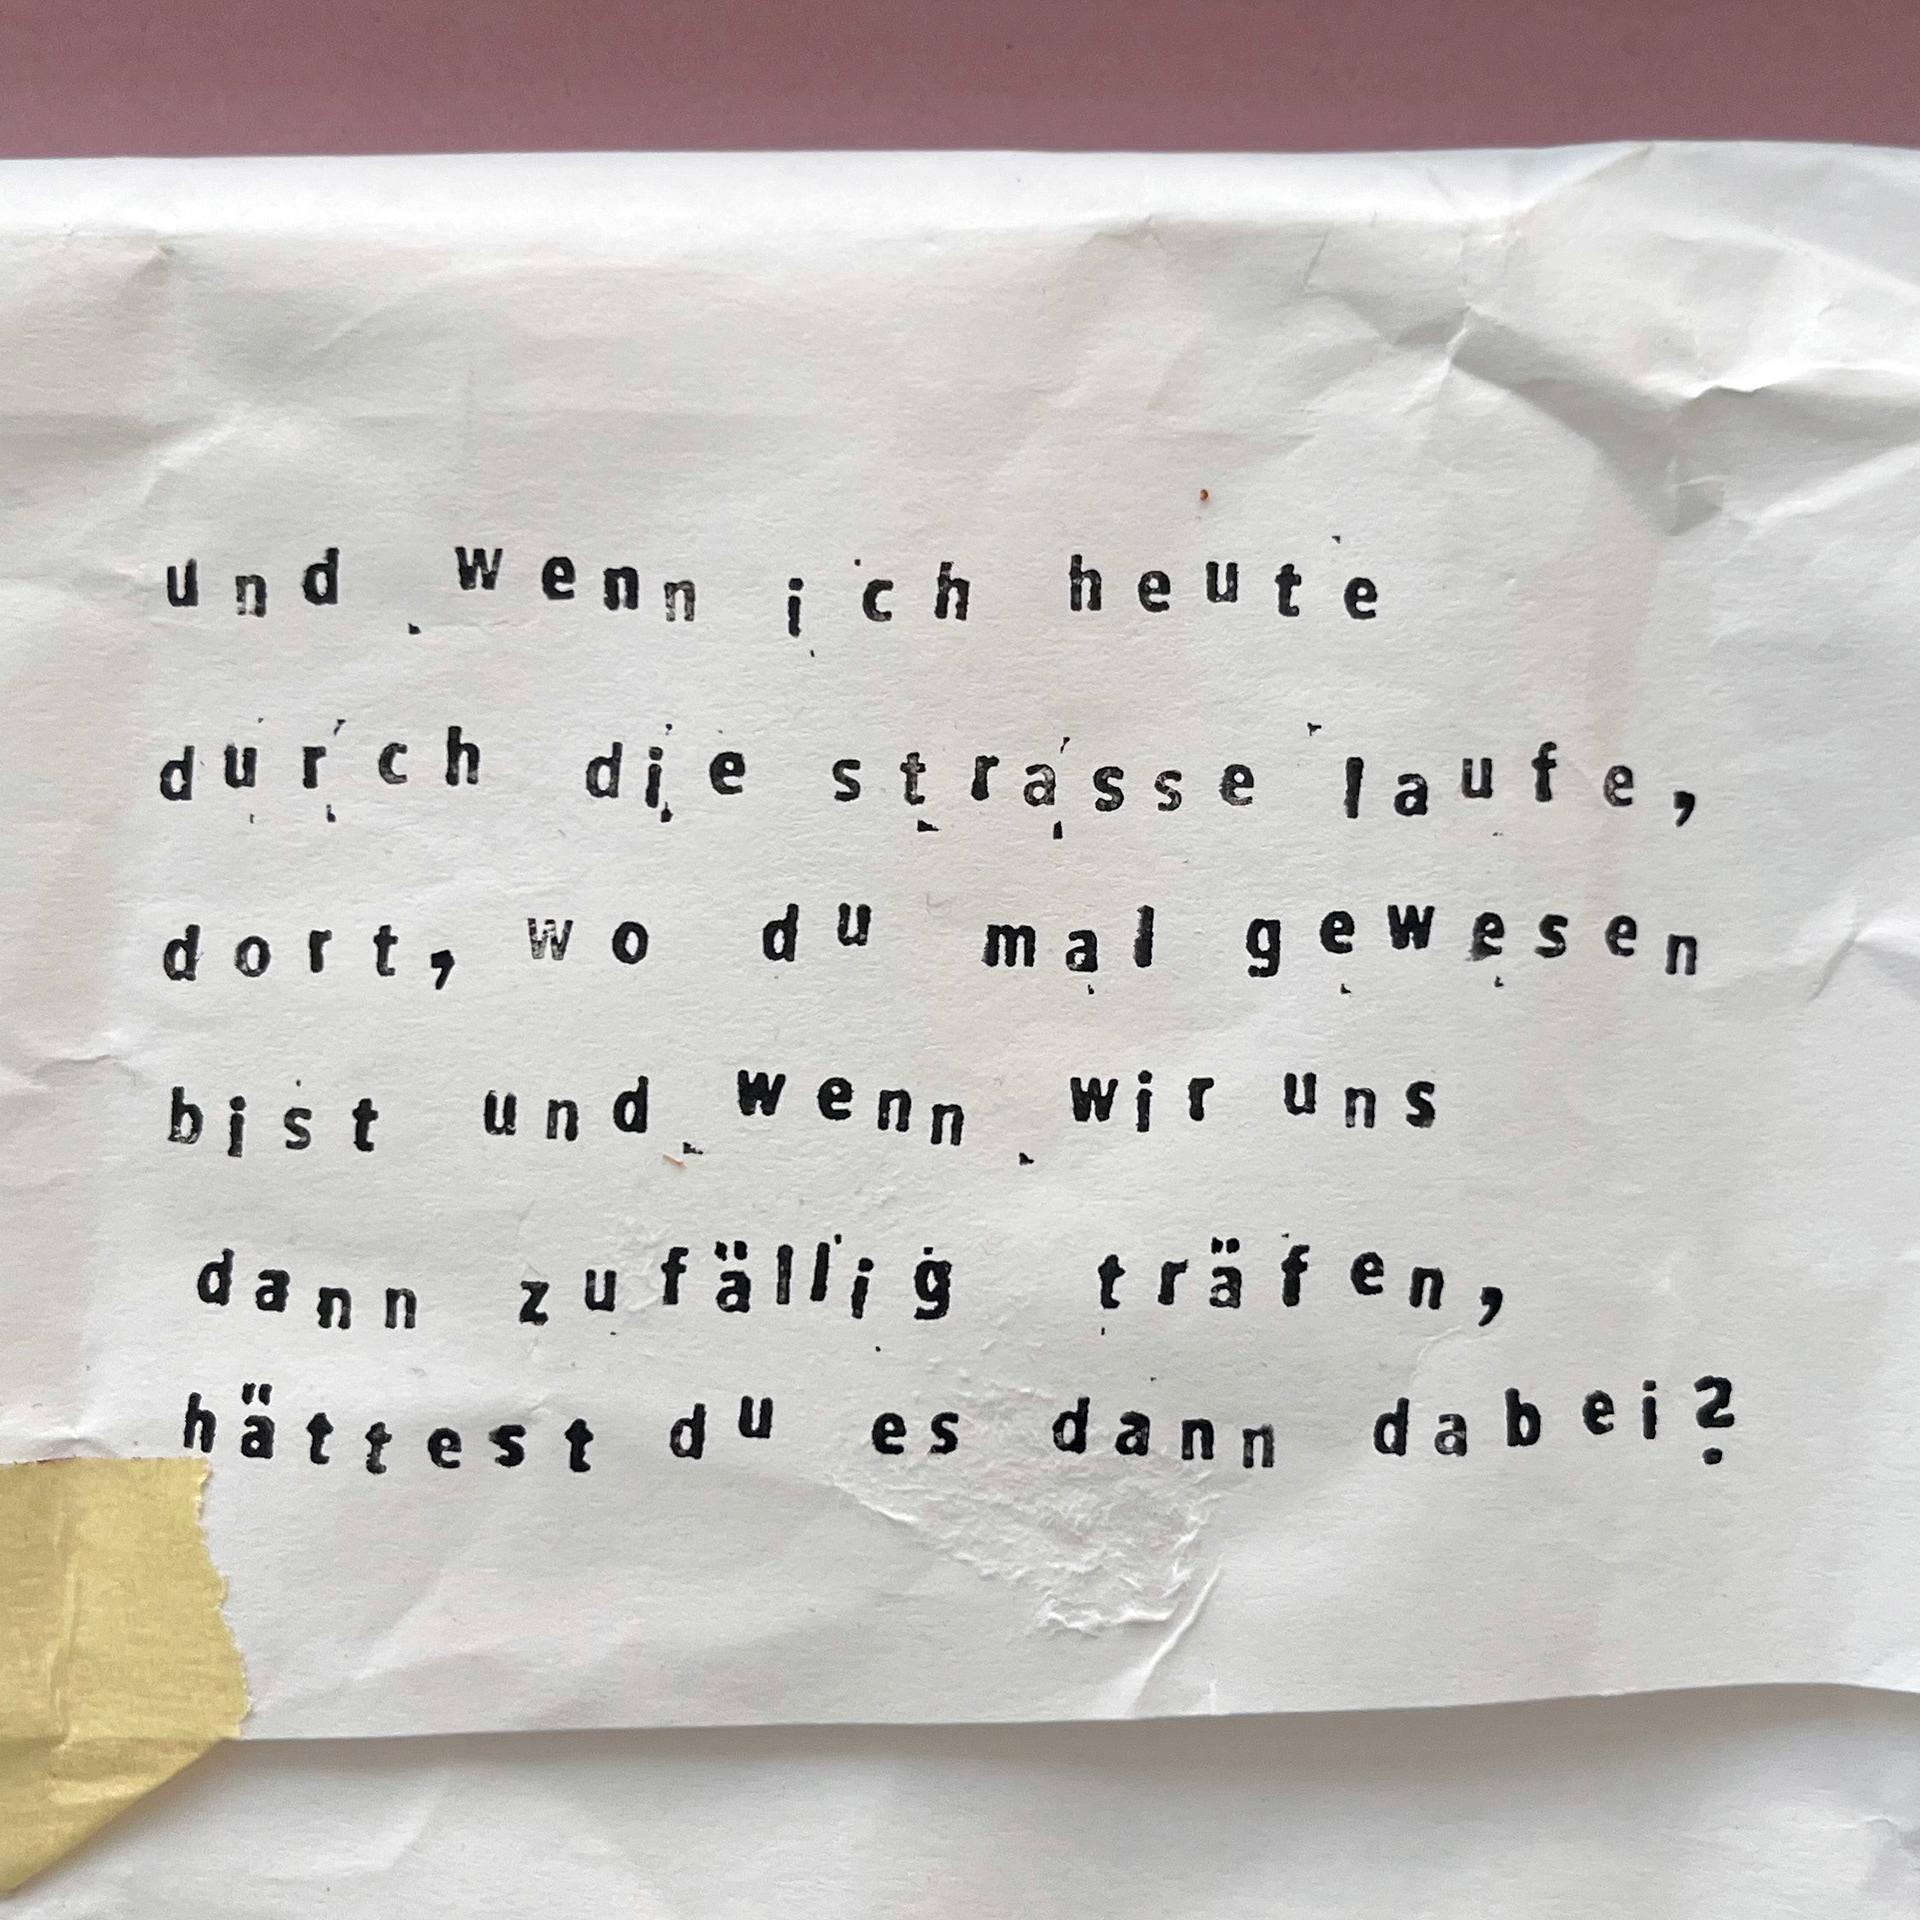 und wenn ich heute
durch die strasse laufe,
dort, wo du mal gewesen
bist und wenn wir uns
dann zufällig träfen,
hättest du es dann dabei?